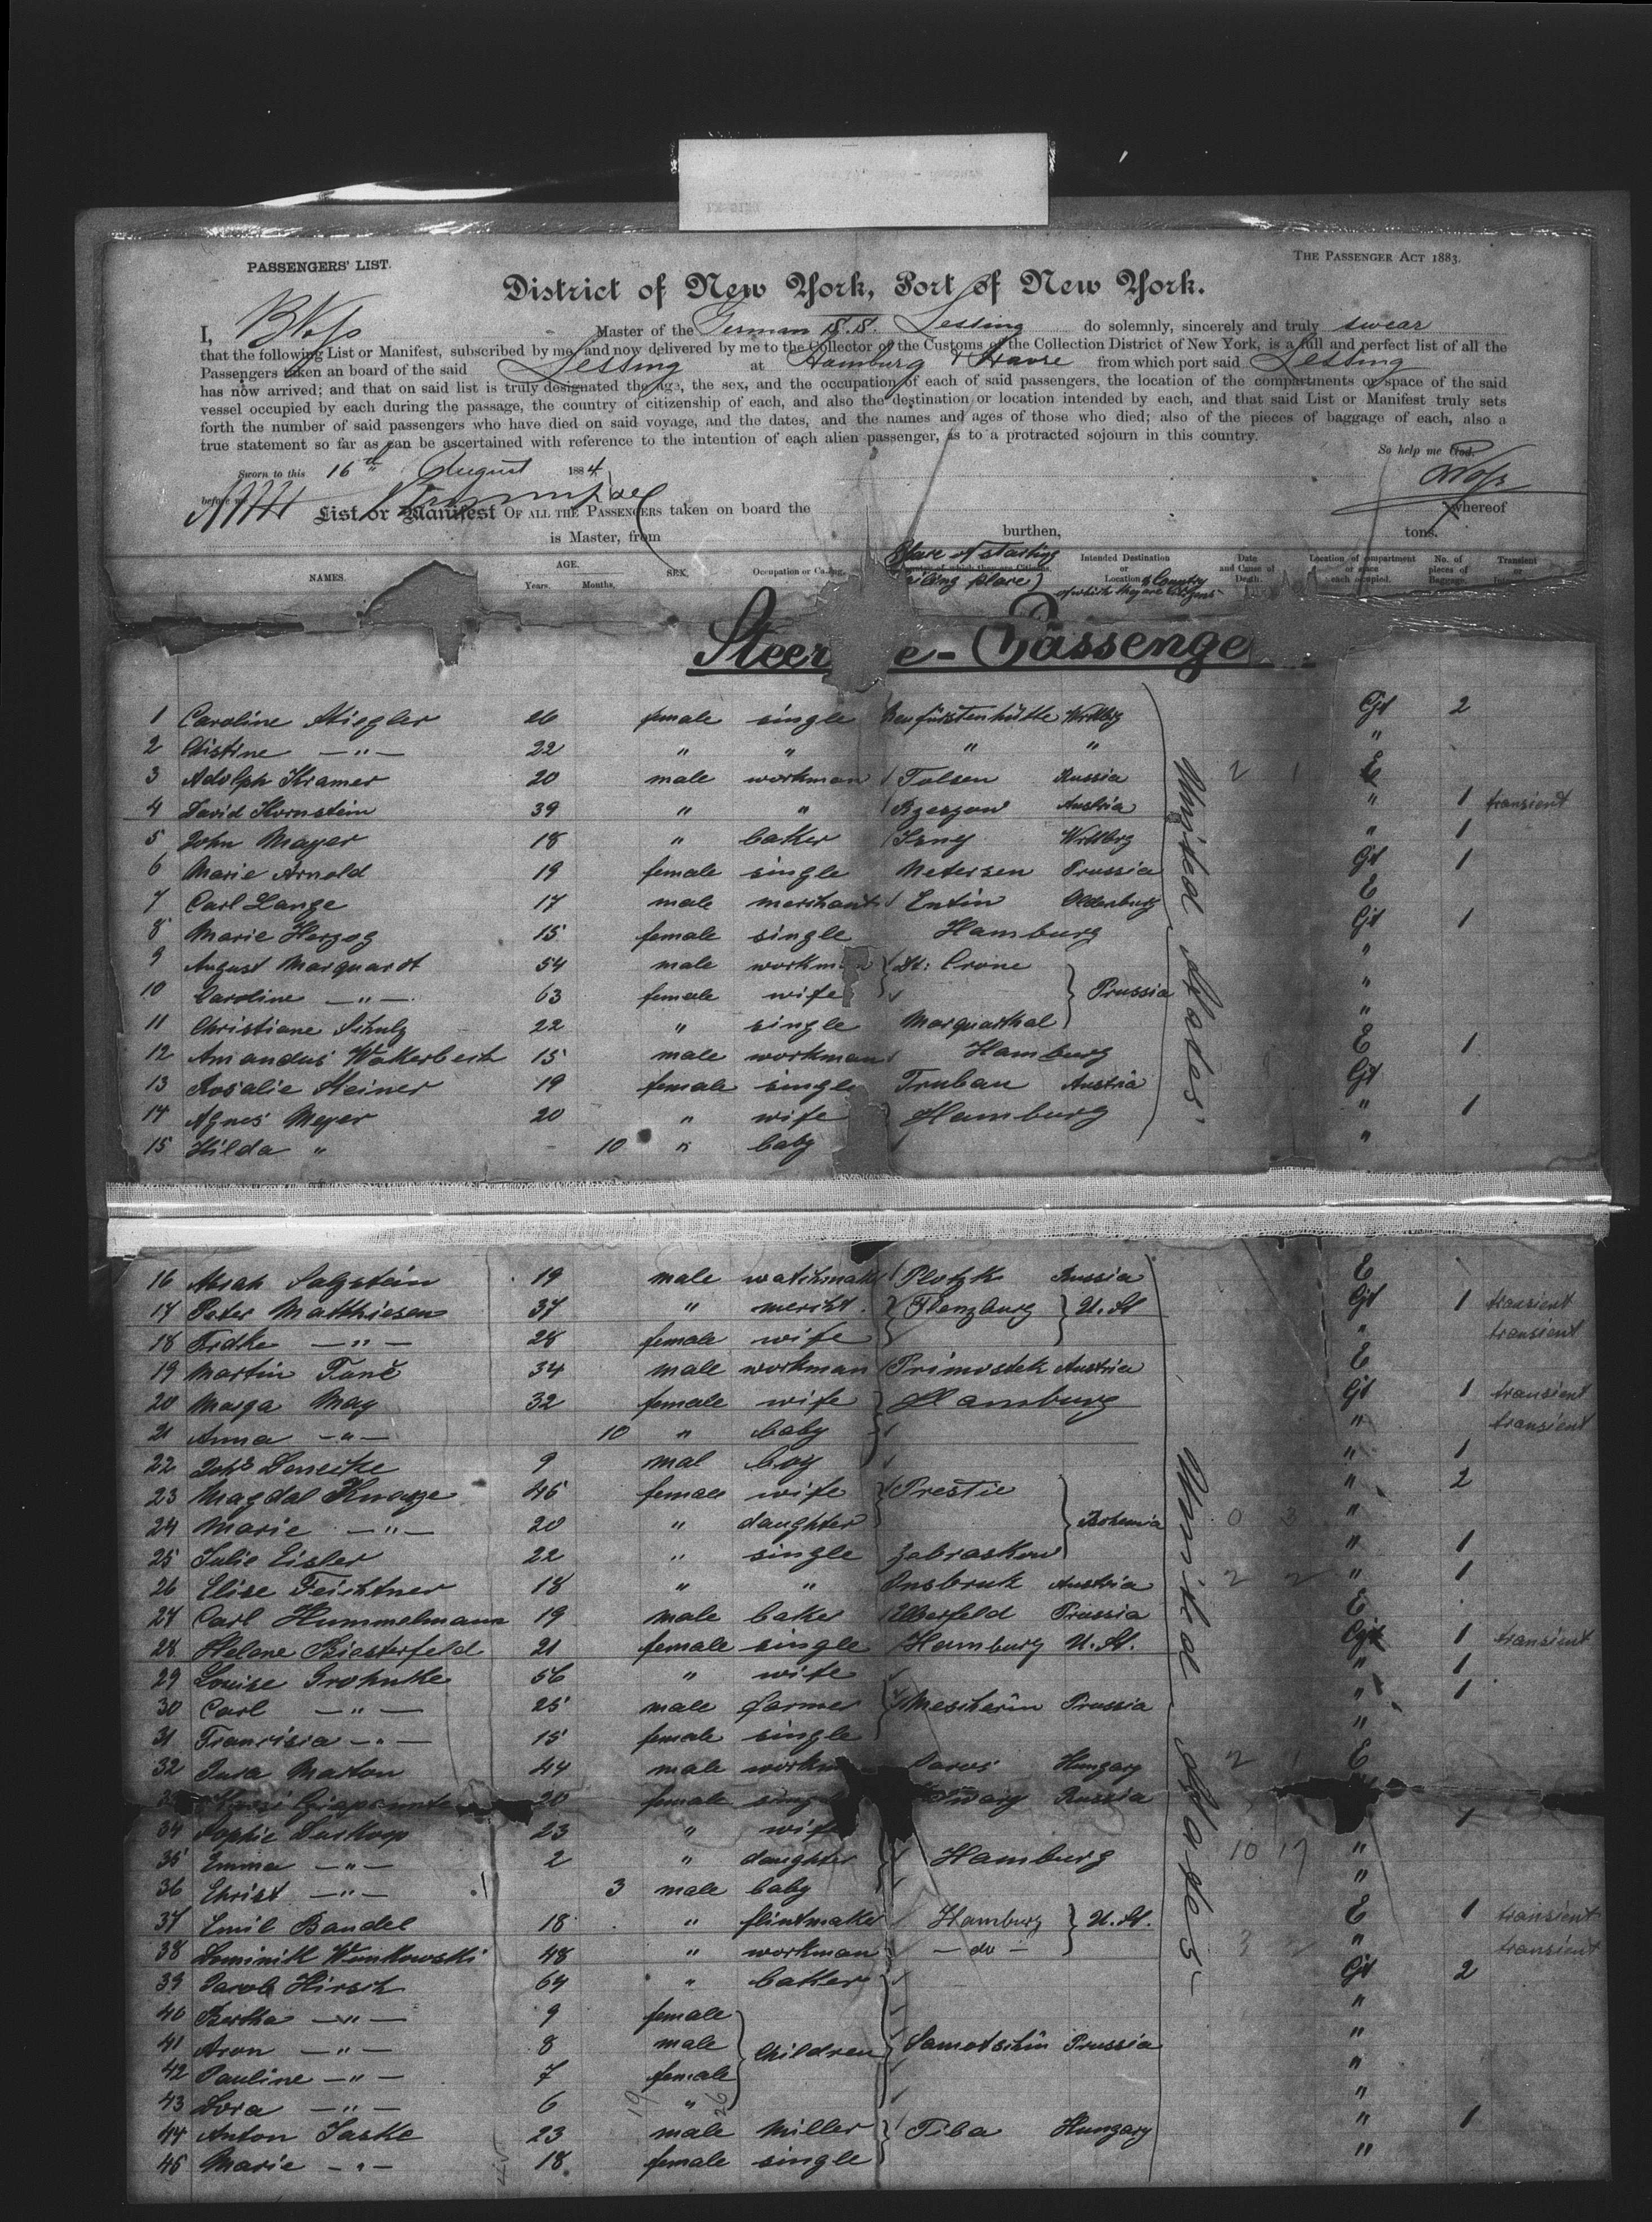 PASSENGERS' LIST.
THE PASSENGER ACT 1883.
District of New York, Port of New York.
I, B Voss Master of the German S.S. Lessing do solemnly, sincerely and truly swear
that the following List or Manifest, subscribed by me, and now delivered by me to the Collector of the Customs of the Collection District of New York, is a full and perfect list of all the
Passengers taken on board of the said Lessing at Hamburg & Havre from which port said Lessing
has now arrived; and that on said list is truly designated the age, the sex, and the occupation of each of said passengers, the location of the compartments or space of the said
vessel occupied by each during the passage, the country of citizenship of each, and also the destination or location intended by each, and that said List or Manifest truly sets
forth the number of said passengers who have died on said voyage, and the dates, and the names and ages of those who died; also of the pieces of baggage of each, also a
true statement so far as can be ascertained with reference to the intention of each alien passenger, as to a protracted sojourn in this country.
So help me God.
Sworn to this 16th August 1884
Voss
before me
List or Manifest OF ALL THE PASSENGERS taken on board the whereof
is Master, from burthen, tons.
NAMES. AGE. Years. Months. SEX. Occupation or Calling. Place of starting Intended Destination or Location & Country of which they are Citizens Date and Cause of Death. Location of compartment or space each occupied. No. of pieces of Baggage. Transient or
Steer e-Passenge
1 Caroline Stiegler 26 female single Neufürstenhütte Wrttbg Gt 2
2 Christine —"— 22 " " " " "
3 Adolph Kramer 20 male workman Talsen Russia 2 1 E
4 David Kornstein 39 " " Rzeszow Austria " 1 transient
5 John Mayer 18 " baker Isny Wrttbrg " 1
6 Marie Arnold 19 female single Uetersen Prussia Gt 1
7 Carl Lange 17 male merchant Eutin Oldenburg E
8 Marie Herzog 15 female single Hamburg Gt 1
9 August Marquardt 54 male workman Dt: Crone "
10 Caroline —"— 63 female wife Prussia "
11 Christiane Schulz 22 " single Marquarthal "
12 Amandus Wakerbech 15 male workman Hamburg E 1
13 Rosalie Steiner 19 female single Truban Austria Gt
14 Agnes Meyer 20 " wife Hamburg " 1
15 Hilda " 10 " baby "
United States.
16 Salzstein 19 male watchmak Plotzk Russia E
17 Peter Matthiesen 37 " mercht. Flensburg U. St Gt 1 transient
18 Frdke —"— 28 female wife " transient
19 Martin Fanč 34 male workman Primostek Austria E
20 Marga May 32 female wife Hamburg Gt 1 transient
21 Anna —"— 10 " baby " transient
22 Johs 9 mal boy " 1
23 Magdal 45 female wife Prestic " 2
24 Marie —"— 20 " daughter Bohemia 0 3 "
25 Julie Eisler 22 " single Zebraskow " 1
26 Elise Feichtner 18 " " Insbruk Austria 2 2 " 1
27 Carl Hummelmann 19 male baker Elberfeld Prussia E
28 Helene Biesterfeld 21 female single Hamburg U. St. Gt 1 transient
29 Louise 56 " wife " 1
30 Carl —"— 25 male farmer Mescherin Prussia " 1
31 Francisia —"— 15 female single "
32 Marton 44 male workm Hungary 2 1 E
20 female sing Russia
34 Sophie 23 " wife 1
35 Emma —"— 2 " daughter Hamburg 10 17 "
36 Christ —"— 3 male baby "
37 Emil Bandel 18 " flintmaker Hamburg U. St. E 1 transient
38 Dominik Wonkowski 48 " workman — do — 3 2 " transient
39 Jacob Hirsch 64 " baker Gt 2
40 Bertha —"— 9 female "
41 Aron —"— 8 male Children Samotschin Prussia "
42 Pauline —"— 7 female "
43 Dora —"— 6 " "
44 Anton Jaske 23 male Miller Tiba Hungary " 1
45 Marie —"— 18 female single "
United States
19 26